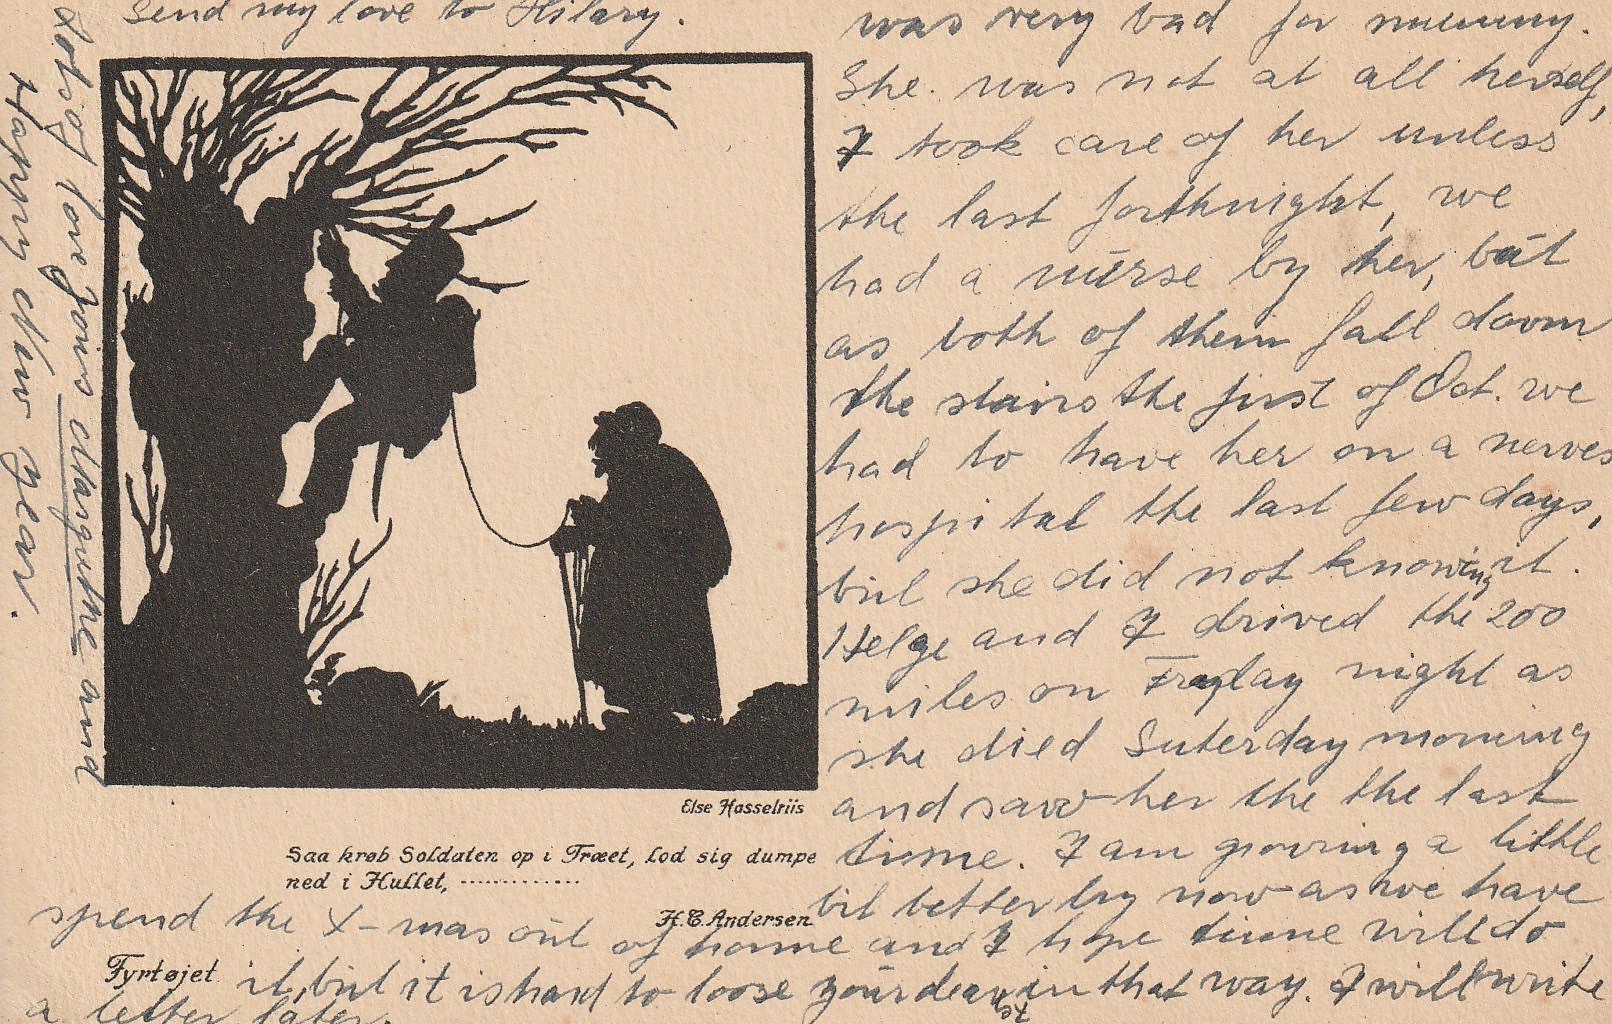 Send my love to Hilary.
was very bad for mummy.
She was not at all herself,
I took care of her unless
the last forthnight, we
had a nurse by her, but
as both of them fall down
the stairs the first of Oct. we
had to have her on a nerves
hospital the last few days,
but she did not knowing it.
Helge and I drived the 200
miles on Fryday night as
she died Suterday morning
and saw her the the last
time. I am growing a little
bit better by now as we have
spend the X-mas out of home and I hope time will do
it, but it is hard to loose your dearest in that way. I will write
a letter later.
Lots of love yours Margrethe and
Happy New Year.
Else Hasselriis
Saa krøb Soldaten op i Træet, lod sig dumpe
ned i Hullet, .............
H.C. Andersen
Fyrtøjet